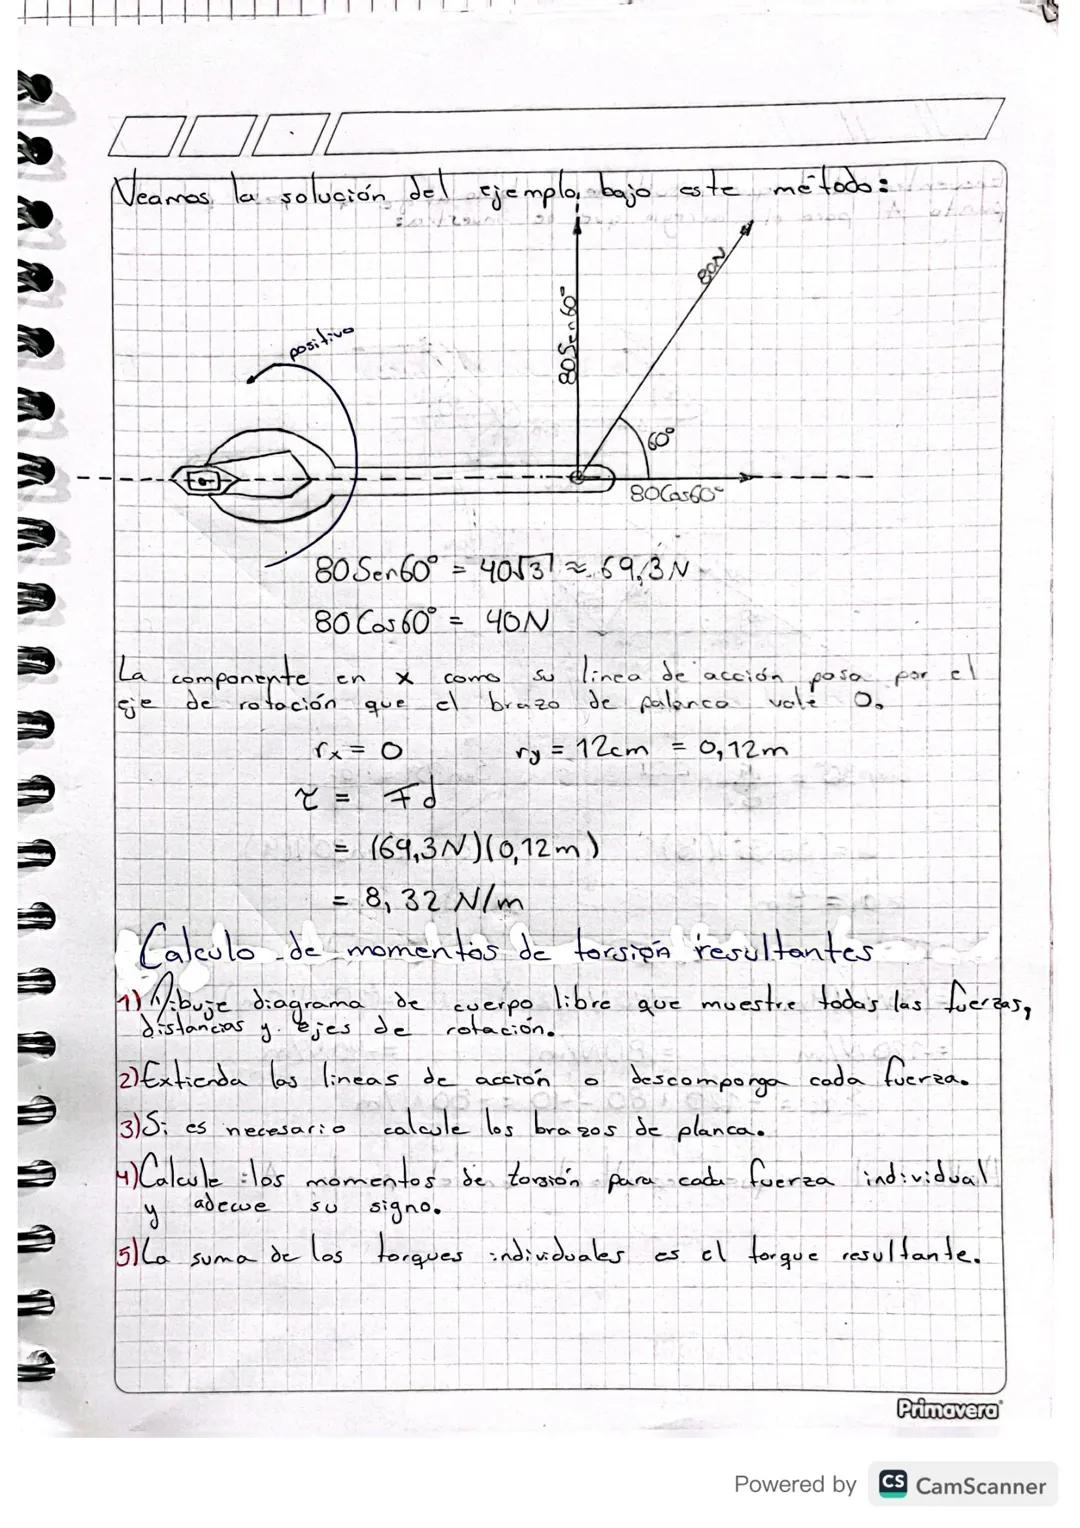 Veamos la solución del ejemplo, bajo este método:
80N
80Sen60°
positivo
60°
80Cos60°
80Sen60° = 40√3 ≈ 69,3N
80Cos60° = 40N
La componente en x como su linea de acción pasa por el
eje de rotación que el brazo de palanca vale 0.
rx = 0 ry = 12cm = 0,12m
τ = Fd
= (69,3N)(0,12m)
= 8,32 N/m
Calculo de momentos de torsión resultantes
1) Dibuje diagrama de cuerpo libre que muestre todas las fuerzas,
distancias y ejes de rotación.
2) Extienda las lineas de acción o descomponga cada fuerza.
3) Si es necesario calcule los brazos de planca.
4) Calcule los momentos de torsión para cada fuerza individual
y adecue su signo.
5) La suma de los torques individuales es el torque resultante.
Primavera
Powered by CS CamScanner